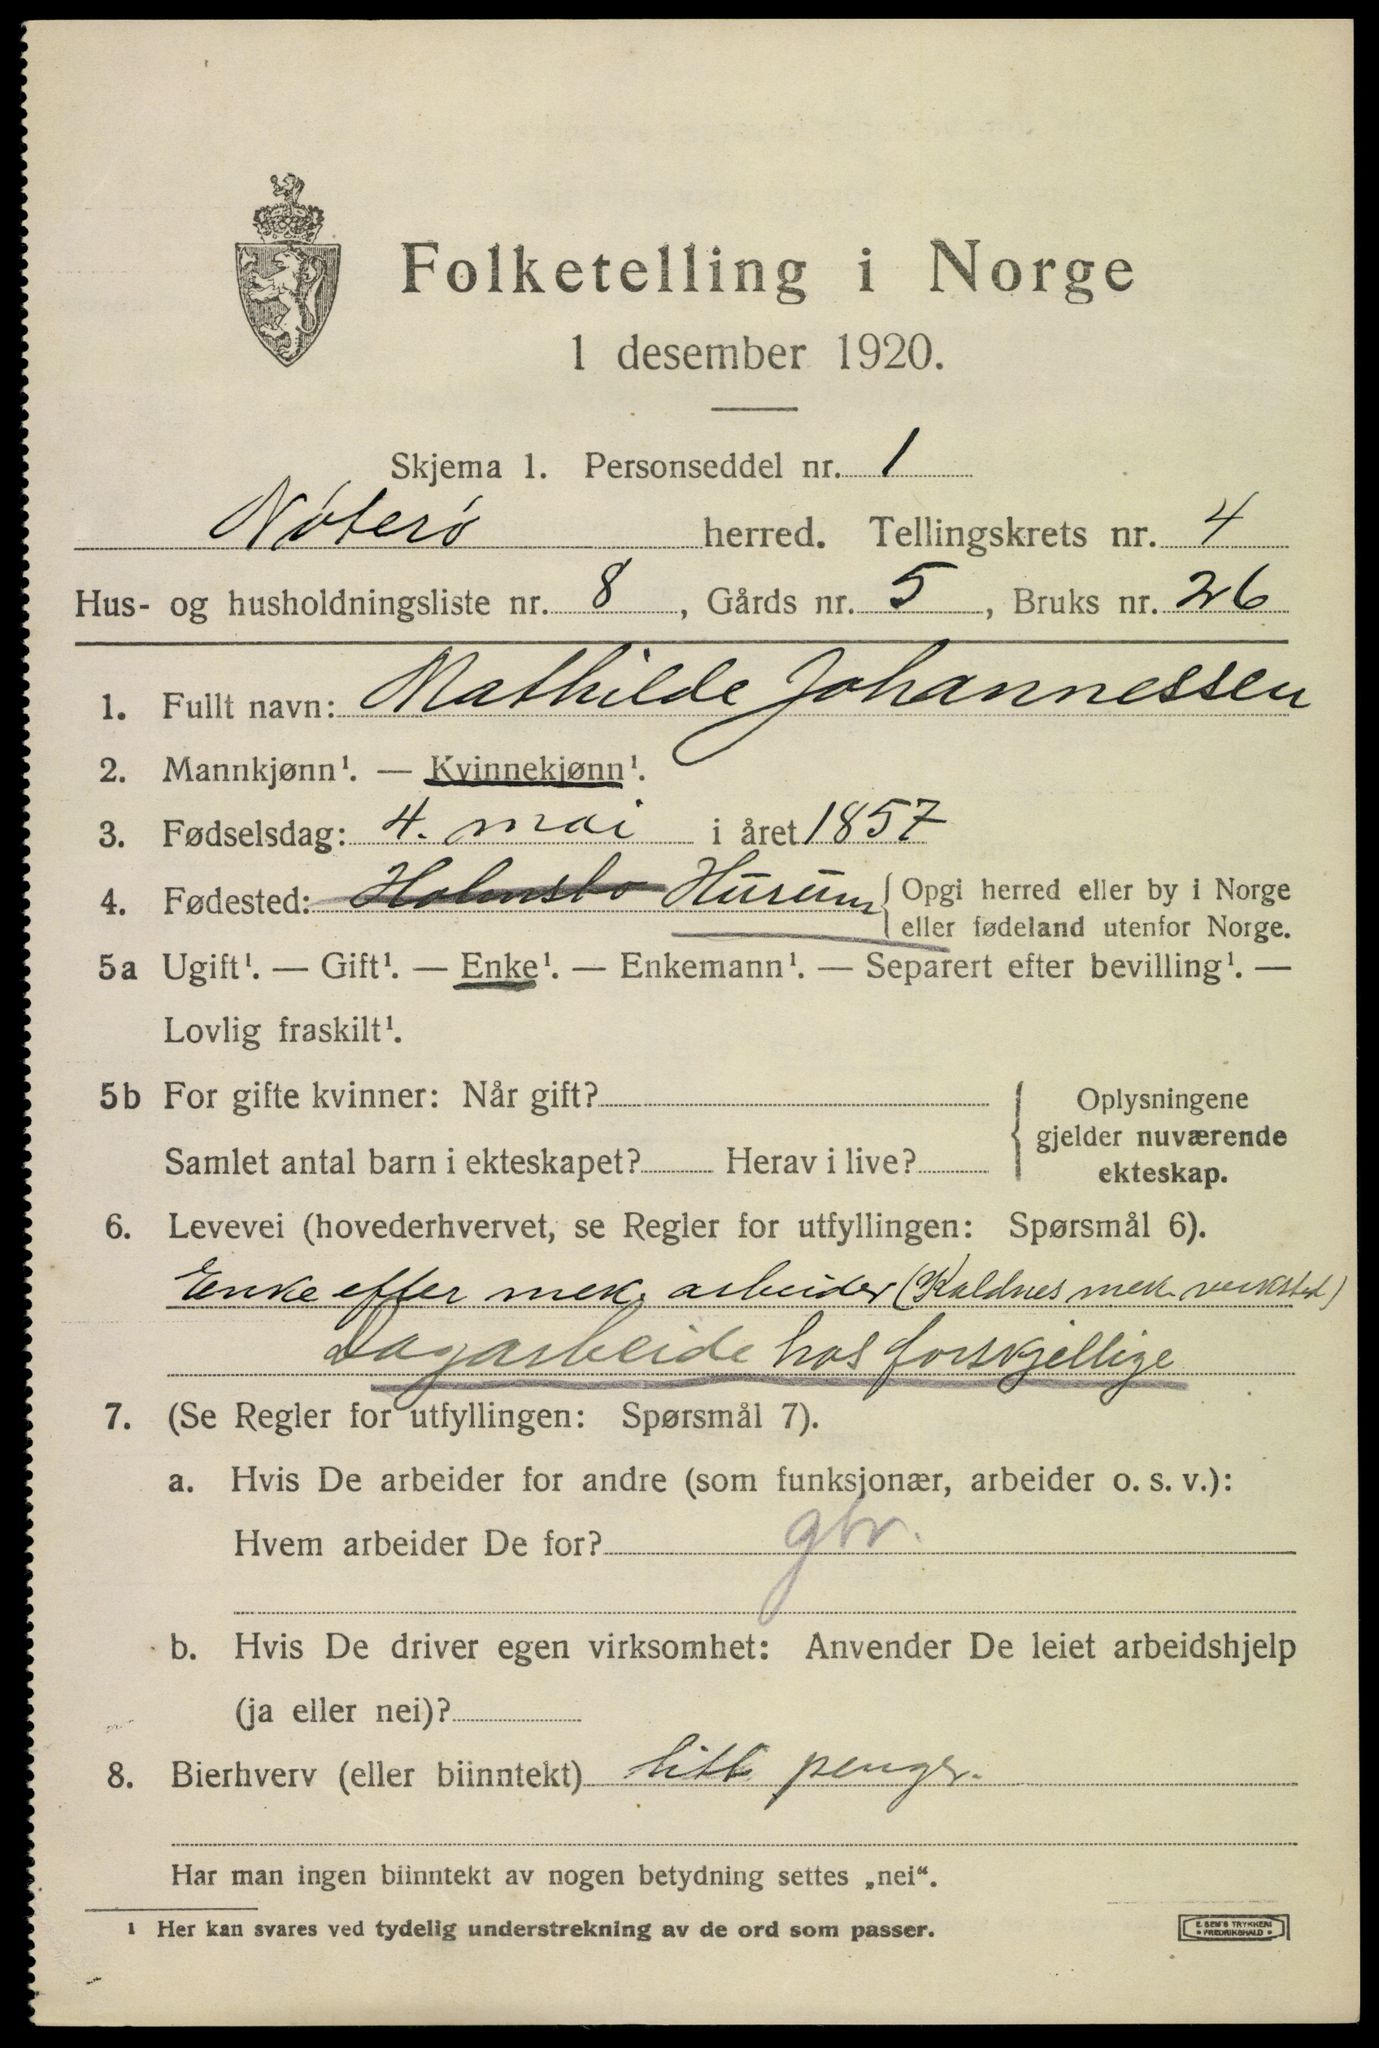 Folketelling i Norge
1 desember 1920.
Skjema 1. Personseddel nr. 1
Nøterø herred. Tellingskrets nr. 4
Hus- og husholdningsliste nr. 8, Gårds nr. 5, Bruks nr. 26
1. Fullt navn: Mathilde Johannessen
2. Mannkjønn¹. — Kvinnekjønn¹.
3. Fødselsdag: 4. mai i året 1857
4. Fødested: Holmsbo Hurum { Opgi herred eller by i Norge
eller fødeland utenfor Norge.
5a Ugift¹. — Gift¹. — Enke¹. — Enkemann¹. — Separert efter bevilling¹. —
Lovlig fraskilt¹.
5b For gifte kvinner: Når gift?
Samlet antal barn i ekteskapet? Herav i live?
{ Oplysningene
gjelder nuværende
ekteskap.
6. Levevei (hovederhvervet, se Regler for utfyllingen: Spørsmål 6).
Enke efter mek. arbeider (Kaldnes mek. verksted)
Dagarbeide hos forskjellige
7. (Se Regler for utfyllingen: Spørsmål 7).
a. Hvis De arbeider for andre (som funksjonær, arbeider o. s. v.):
Hvem arbeider De for?
b. Hvis De driver egen virksomhet: Anvender De leiet arbeidshjelp
(ja eller nei)?
8. Bierhverv (eller biinntekt) litt penger.
Har man ingen biinntekt av nogen betydning settes „nei“.
¹ Her kan svares ved tydelig understrekning av de ord som passer.
E. SEM'S TRYKKERI
* FREDRIKSHALD *